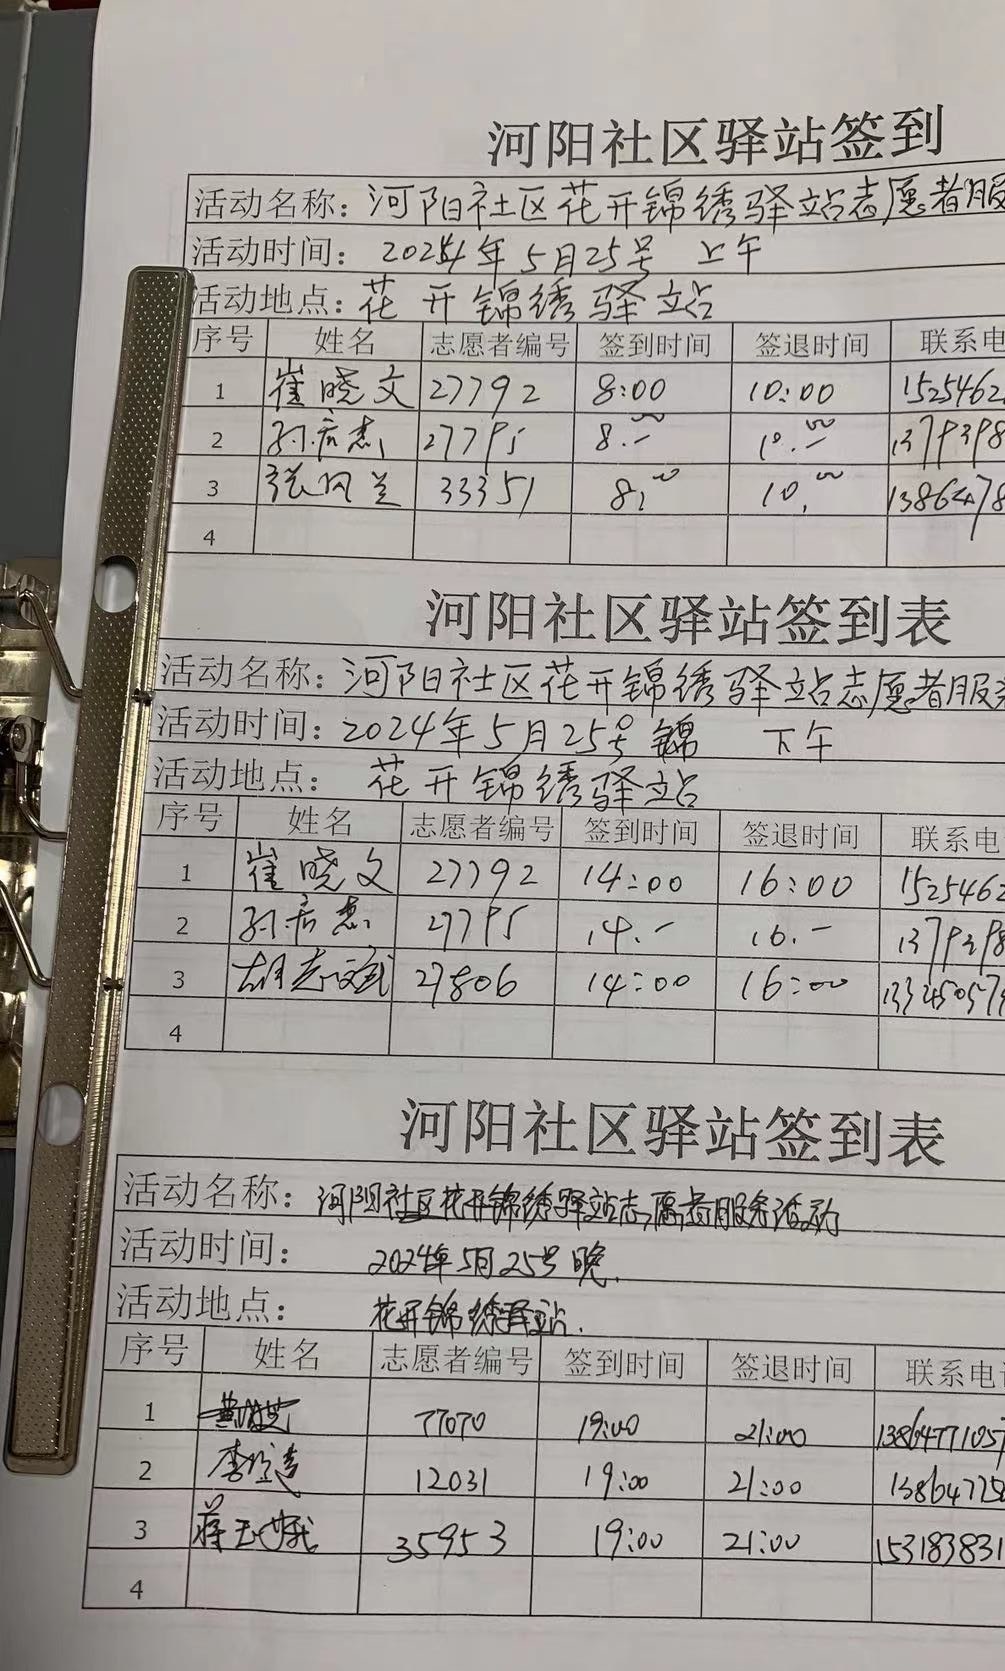 河阳社区驿站签到
活动名称：河阳社区花开锦绣驿站志愿者服
活动时间：2024年5月25号 上午
活动地点：花开锦绣驿站
序号 姓名 志愿者编号 签到时间 签退时间 联系电
1 崔晓文 27792 8:00 10:00 1525462
2 27795 8.00 10.00 1379398
3 张风兰 33351 8:00 10.00 1386478
4
河阳社区驿站签到表
活动名称：河阳社区花开锦绣驿站志愿者服务
活动时间：2024年5月25号 锦 下午
活动地点：花开锦绣驿站
序号 姓名 志愿者编号 签到时间 签退时间 联系电
1 崔晓文 27792 14:00 16:00 1525462
2 27795 14.- 16.- 1379398
3 胡志斌 27806 14:00 16:00
4
河阳社区驿站签到表
活动名称：河阳社区花开锦绣驿站志愿者服务活动
活动时间：2024年5月25号 晚.
活动地点：花开锦绣驿站.
序号 姓名 志愿者编号 签到时间 签退时间 联系电话
1 77070 19:00 21:00 1386477105
2 12031 19:00 21:00
3 蒋玉娥 35953 19:00 21:00 153183831
4